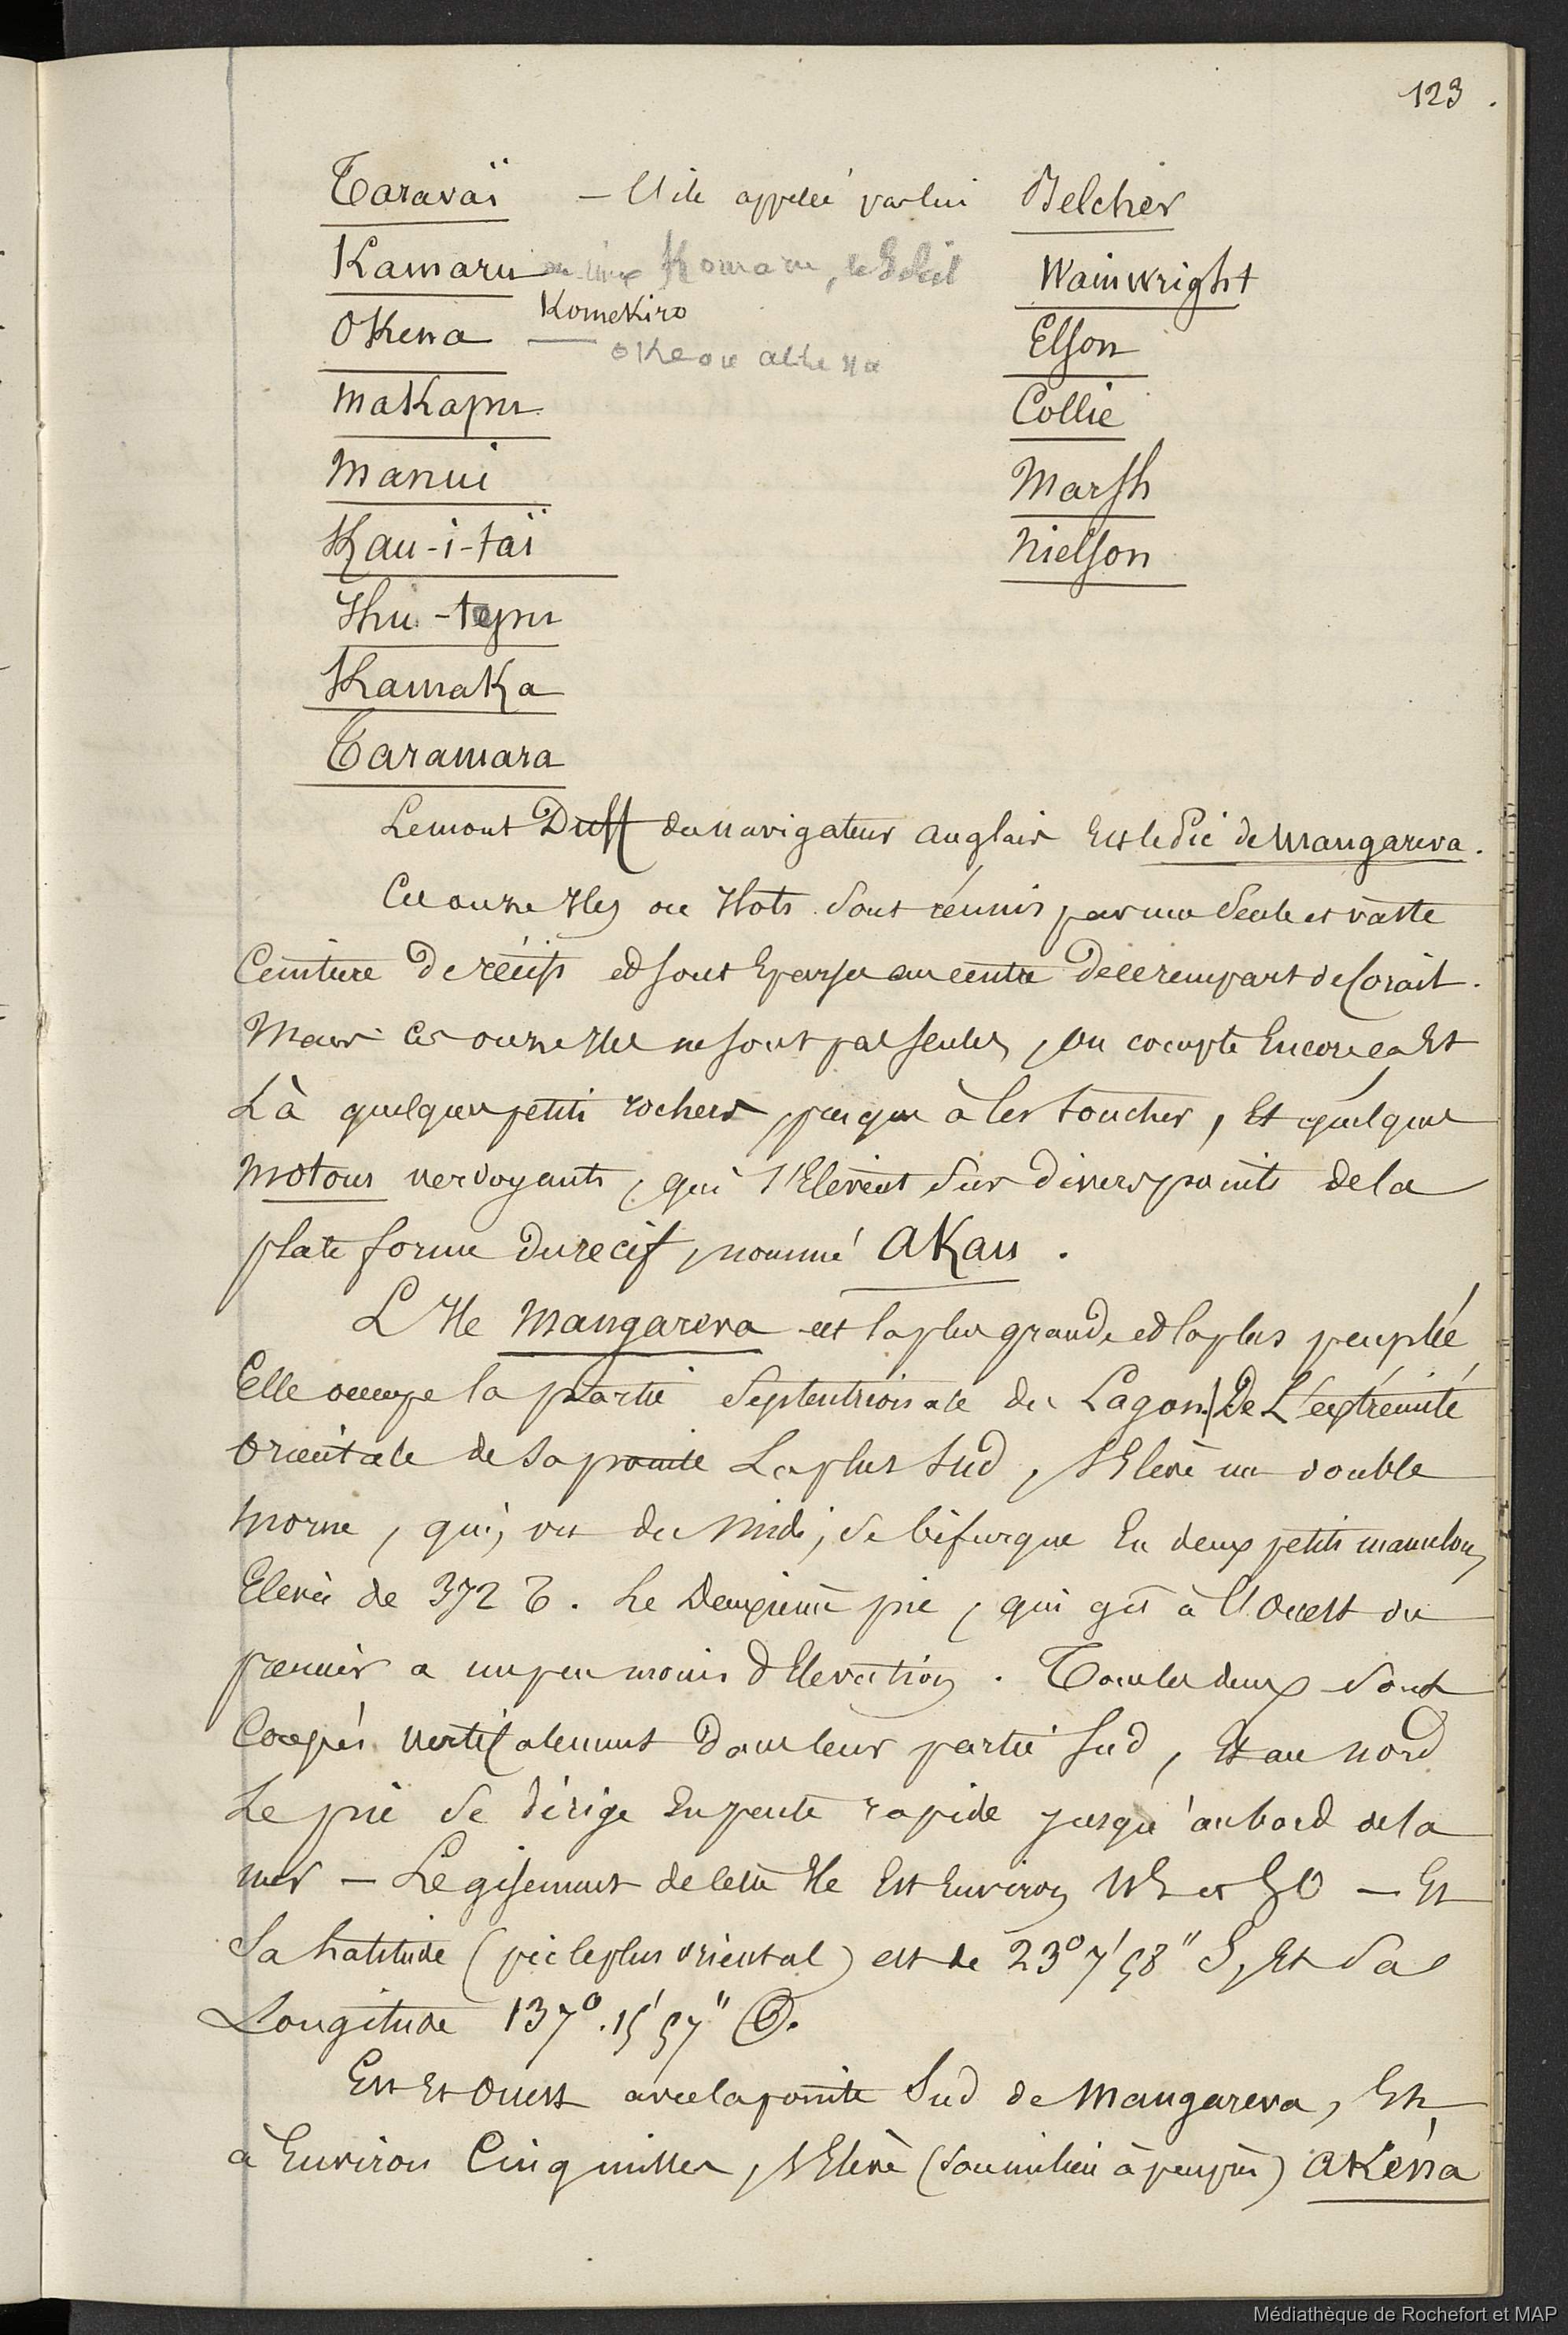 123.
Taravaï — l'ile appelée par lui Belcher
Kamaru ou mieux Komaru, le Soleil Wainwright
Komekiro
Okena — Okeoa Elson
Makapu Collie
Manui Marsh
Kau-i-taï Nielson
Ihu-tepu
Kamaka
Taramara
Le mont Duff du navigateur anglais Est le Pic de Mangareva.
Ces onze Iles ou Ilots sont réunis par une seule et vaste
Ceinture de récifs et sont Eparses au centre de ce rempart de Corail.
Mais ces onze Iles ne sont pas seules, on compte Encore ça Et
Là quelques petits rochers, presque à les toucher, Et quelques
motous verdoyants, qui s'Elèvent sur divers points de la
plate forme du recif, nommé Akau.
L'Ile Mangareva est la plus grande et la plus peuplée
Elle occupe la partie Septentrionale du Lagon. De L'extrémité
Orientale de sa pointe La plus Sud, s'Elève un double
morne, qui, vu du Midi, se bifurque En deux petits mamelons
Elevés de 372 T. Le Deuxième pic, qui gît à l'Ouest du
premier a un peu moins d'Elevation. Tous les deux sont
Coupés verticalement dans leur partie Sud, Et au nord
Le pic se dirige En pente rapide jusqu'au bord de la
mer — Le gisement de cette Ile Est Environ NE et SO — Et
Sa Latitude (pic le plus oriental) est de 23° 7' 58" S, Et Sa
Longitude 137°. 15' 57" O.
Est Et Ouest avec la pointe Sud de Mangareva, Et
à Environ Cinq milles, s'Elève (son milieu à peu près) Akéna
Médiathèque de Rochefort et MAP